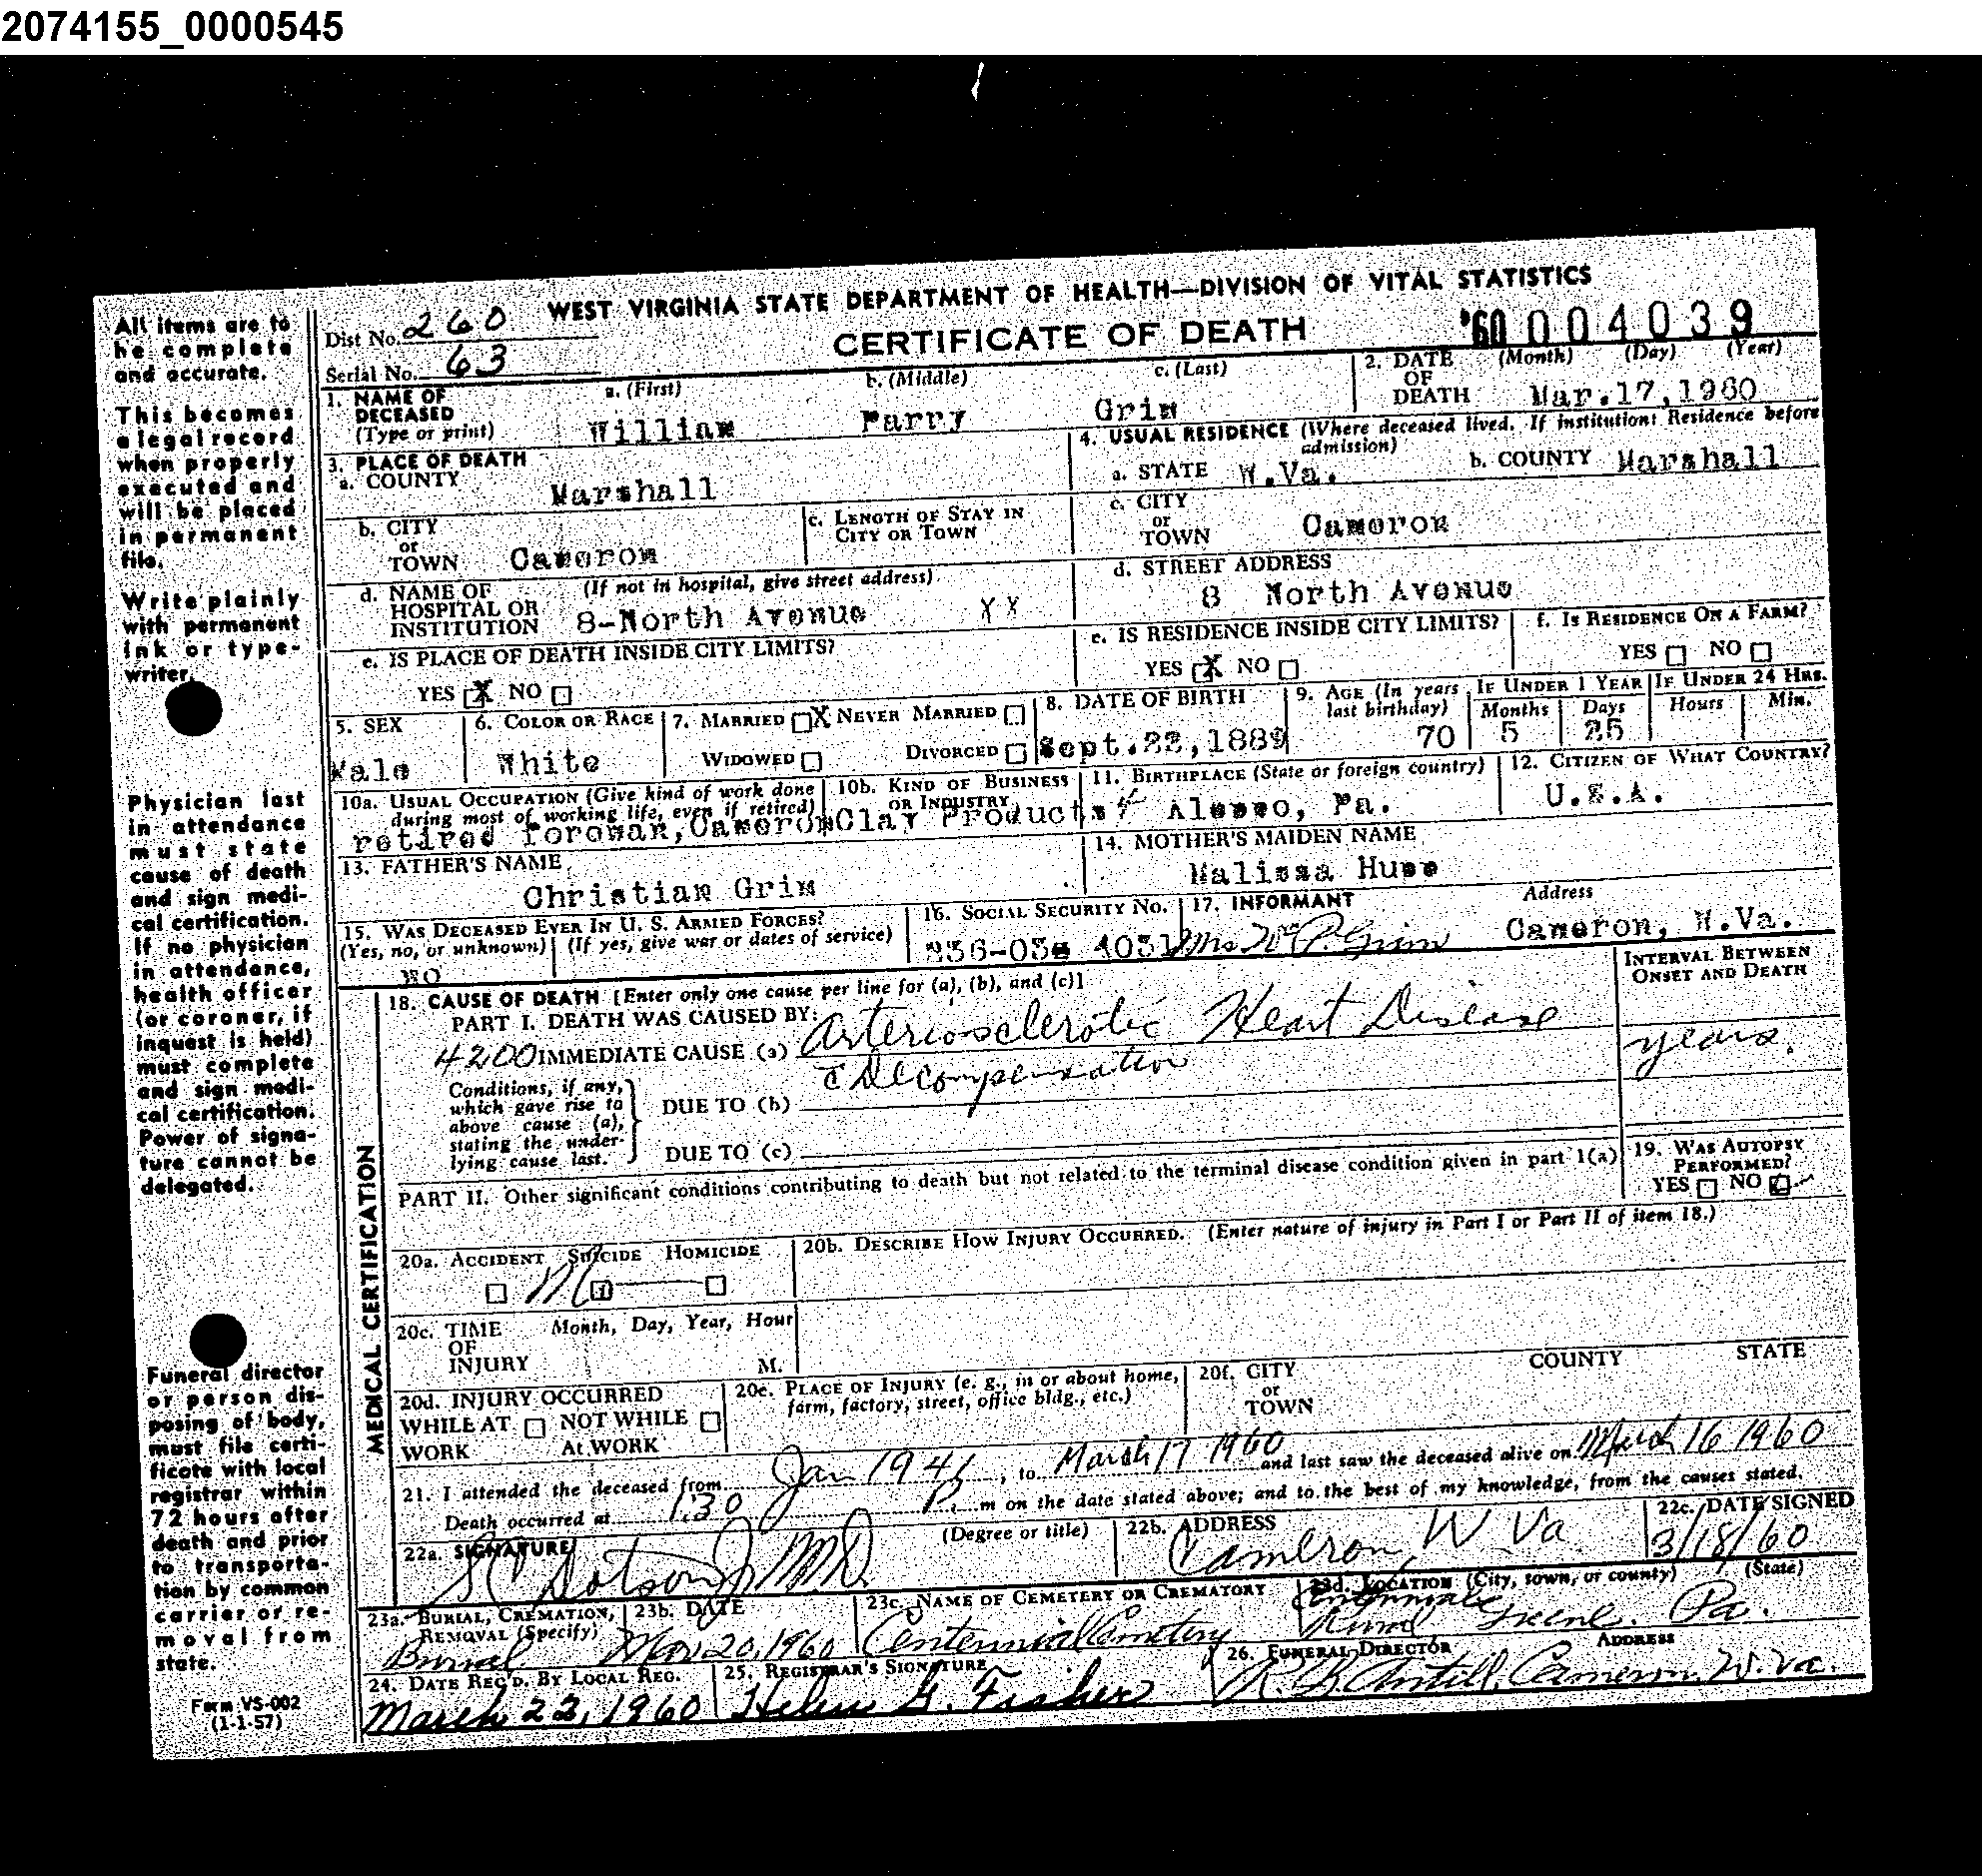 2074155_0000545
WEST VIRGINIA STATE DEPARTMENT OF HEALTH—DIVISION OF VITAL STATISTICS
CERTIFICATE OF DEATH
'60 004039
Dist No. 260
Serial No. 63
All items are to
be complete
and accurate.
This becomes
a legal record
when properly
executed and
will be placed
in permanent
file.
Write plainly
with permanent
ink or type-
writer.
Physician last
in attendance
must state
cause of death
and sign medi-
cal certification.
If no physician
in attendance,
health officer
(or coroner, if
inquest is held)
must complete
and sign medi-
cal certification.
Power of signa-
ture cannot be
delegated.
Funeral director
or person dis-
posing of body,
must file certi-
ficate with local
registrar within
72 hours after
death and prior
to transporta-
tion by common
carrier or re-
moval from
state.
Form VS-002
(1-1-57)
1. NAME OF DECEASED (Type or print) a. (First) William b. (Middle) Parry c. (Last) Grim
2. DATE OF DEATH (Month) (Day) (Year) Mar.17,1960
3. PLACE OF DEATH
a. COUNTY Marshall
4. USUAL RESIDENCE (Where deceased lived. If institution: Residence before admission)
a. STATE W.Va. b. COUNTY Marshall
b. CITY or TOWN Cameron
c. LENGTH OF STAY IN CITY OR TOWN
c. CITY or TOWN Cameron
d. NAME OF HOSPITAL OR INSTITUTION (If not in hospital, give street address) 8-North Avenue XX
d. STREET ADDRESS 8 North Avenue
e. IS PLACE OF DEATH INSIDE CITY LIMITS?
YES X NO
e. IS RESIDENCE INSIDE CITY LIMITS?
YES X NO
f. IS RESIDENCE ON A FARM?
YES NO
5. SEX Male
6. COLOR OR RACE White
7. MARRIED X NEVER MARRIED
WIDOWED DIVORCED
8. DATE OF BIRTH Sept.22,1889
9. AGE (In years last birthday) 70
IF UNDER 1 YEAR Months 5 Days 25
IF UNDER 24 HRS. Hours Min.
10a. USUAL OCCUPATION (Give kind of work done during most of working life, even if retired)
10b. KIND OF BUSINESS OR INDUSTRY
retired foroman, Cameron Clay Products
11. BIRTHPLACE (State or foreign country) Aleppo, Pa.
12. CITIZEN OF WHAT COUNTRY? U.S.A.
13. FATHER'S NAME Christian Grim
14. MOTHER'S MAIDEN NAME Malissa
15. WAS DECEASED EVER IN U. S. ARMED FORCES?
(Yes, no, or unknown) (If yes, give war or dates of service)
NO
16. SOCIAL SECURITY No.
17. INFORMANT Mrs Wm P. Grim Address Cameron, W.Va.
MEDICAL CERTIFICATION
18. CAUSE OF DEATH [Enter only one cause per line for (a), (b), and (c)]
INTERVAL BETWEEN ONSET AND DEATH
PART I. DEATH WAS CAUSED BY:
4200 IMMEDIATE CAUSE (a) Arteriosclerotic Heart Disease
c Decompensation
years.
Conditions, if any, which gave rise to above cause (a), stating the under-lying cause last.
DUE TO (b)
DUE TO (c)
PART II. Other significant conditions contributing to death but not related to the terminal disease condition given in part 1(a)
19. WAS AUTOPSY PERFORMED?
YES NO
20a. ACCIDENT SUICIDE HOMICIDE
No
20b. DESCRIBE HOW INJURY OCCURRED. (Enter nature of injury in Part I or Part II of item 18.)
20c. TIME OF INJURY Month, Day, Year, Hour M.
20d. INJURY OCCURRED
WHILE AT WORK NOT WHILE AT WORK
20e. PLACE OF INJURY (e. g., in or about home, farm, factory, street, office bldg., etc.)
20f. CITY or TOWN COUNTY STATE
21. I attended the deceased from Jan 1941, to March 17 1960 and last saw the deceased alive on March 16 1960
Death occurred at 1:30 P. m on the date stated above; and to the best of my knowledge, from the causes stated.
22a. SIGNATURE (Degree or title) Dotson Jr MD
22b. ADDRESS Cameron, W Va
22c. DATE SIGNED 3/18/60
23a. BURIAL, CREMATION, REMOVAL (Specify) Burial
23b. DATE Mar 20, 1960
23c. NAME OF CEMETERY OR CREMATORY Centennial Cemetery
23d. LOCATION (City, town, or county) (State) Centennial Rural Greene. Pa.
24. DATE REC'D. BY LOCAL REG. March 22, 1960
25. REGISTRAR'S SIGNATURE Helen G. Fisher
26. FUNERAL DIRECTOR ADDRESS R. B. Antill, Cameron, W. Va.